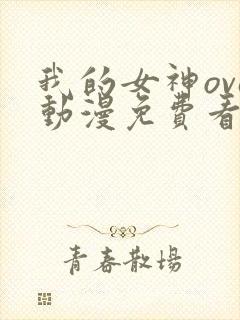 我的女神ova
動漫免費看
青春散場